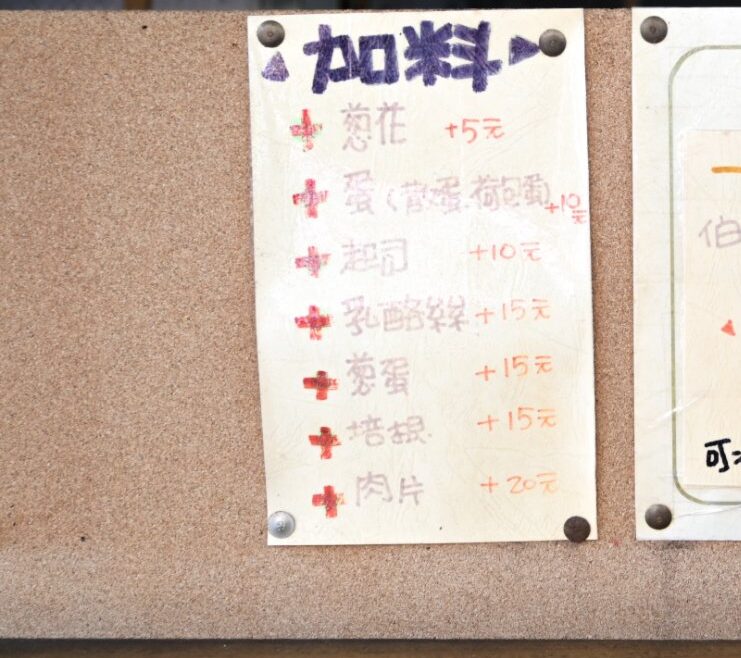 加料
+ 蔥花 +5元
+ 蛋(普蛋.荷包蛋) +10元
+ 起司 +10元
+ 乳酪絲 +15元
+ 蔥蛋 +15元
+ 培根 +15元
+ 肉片 +20元
伯
可